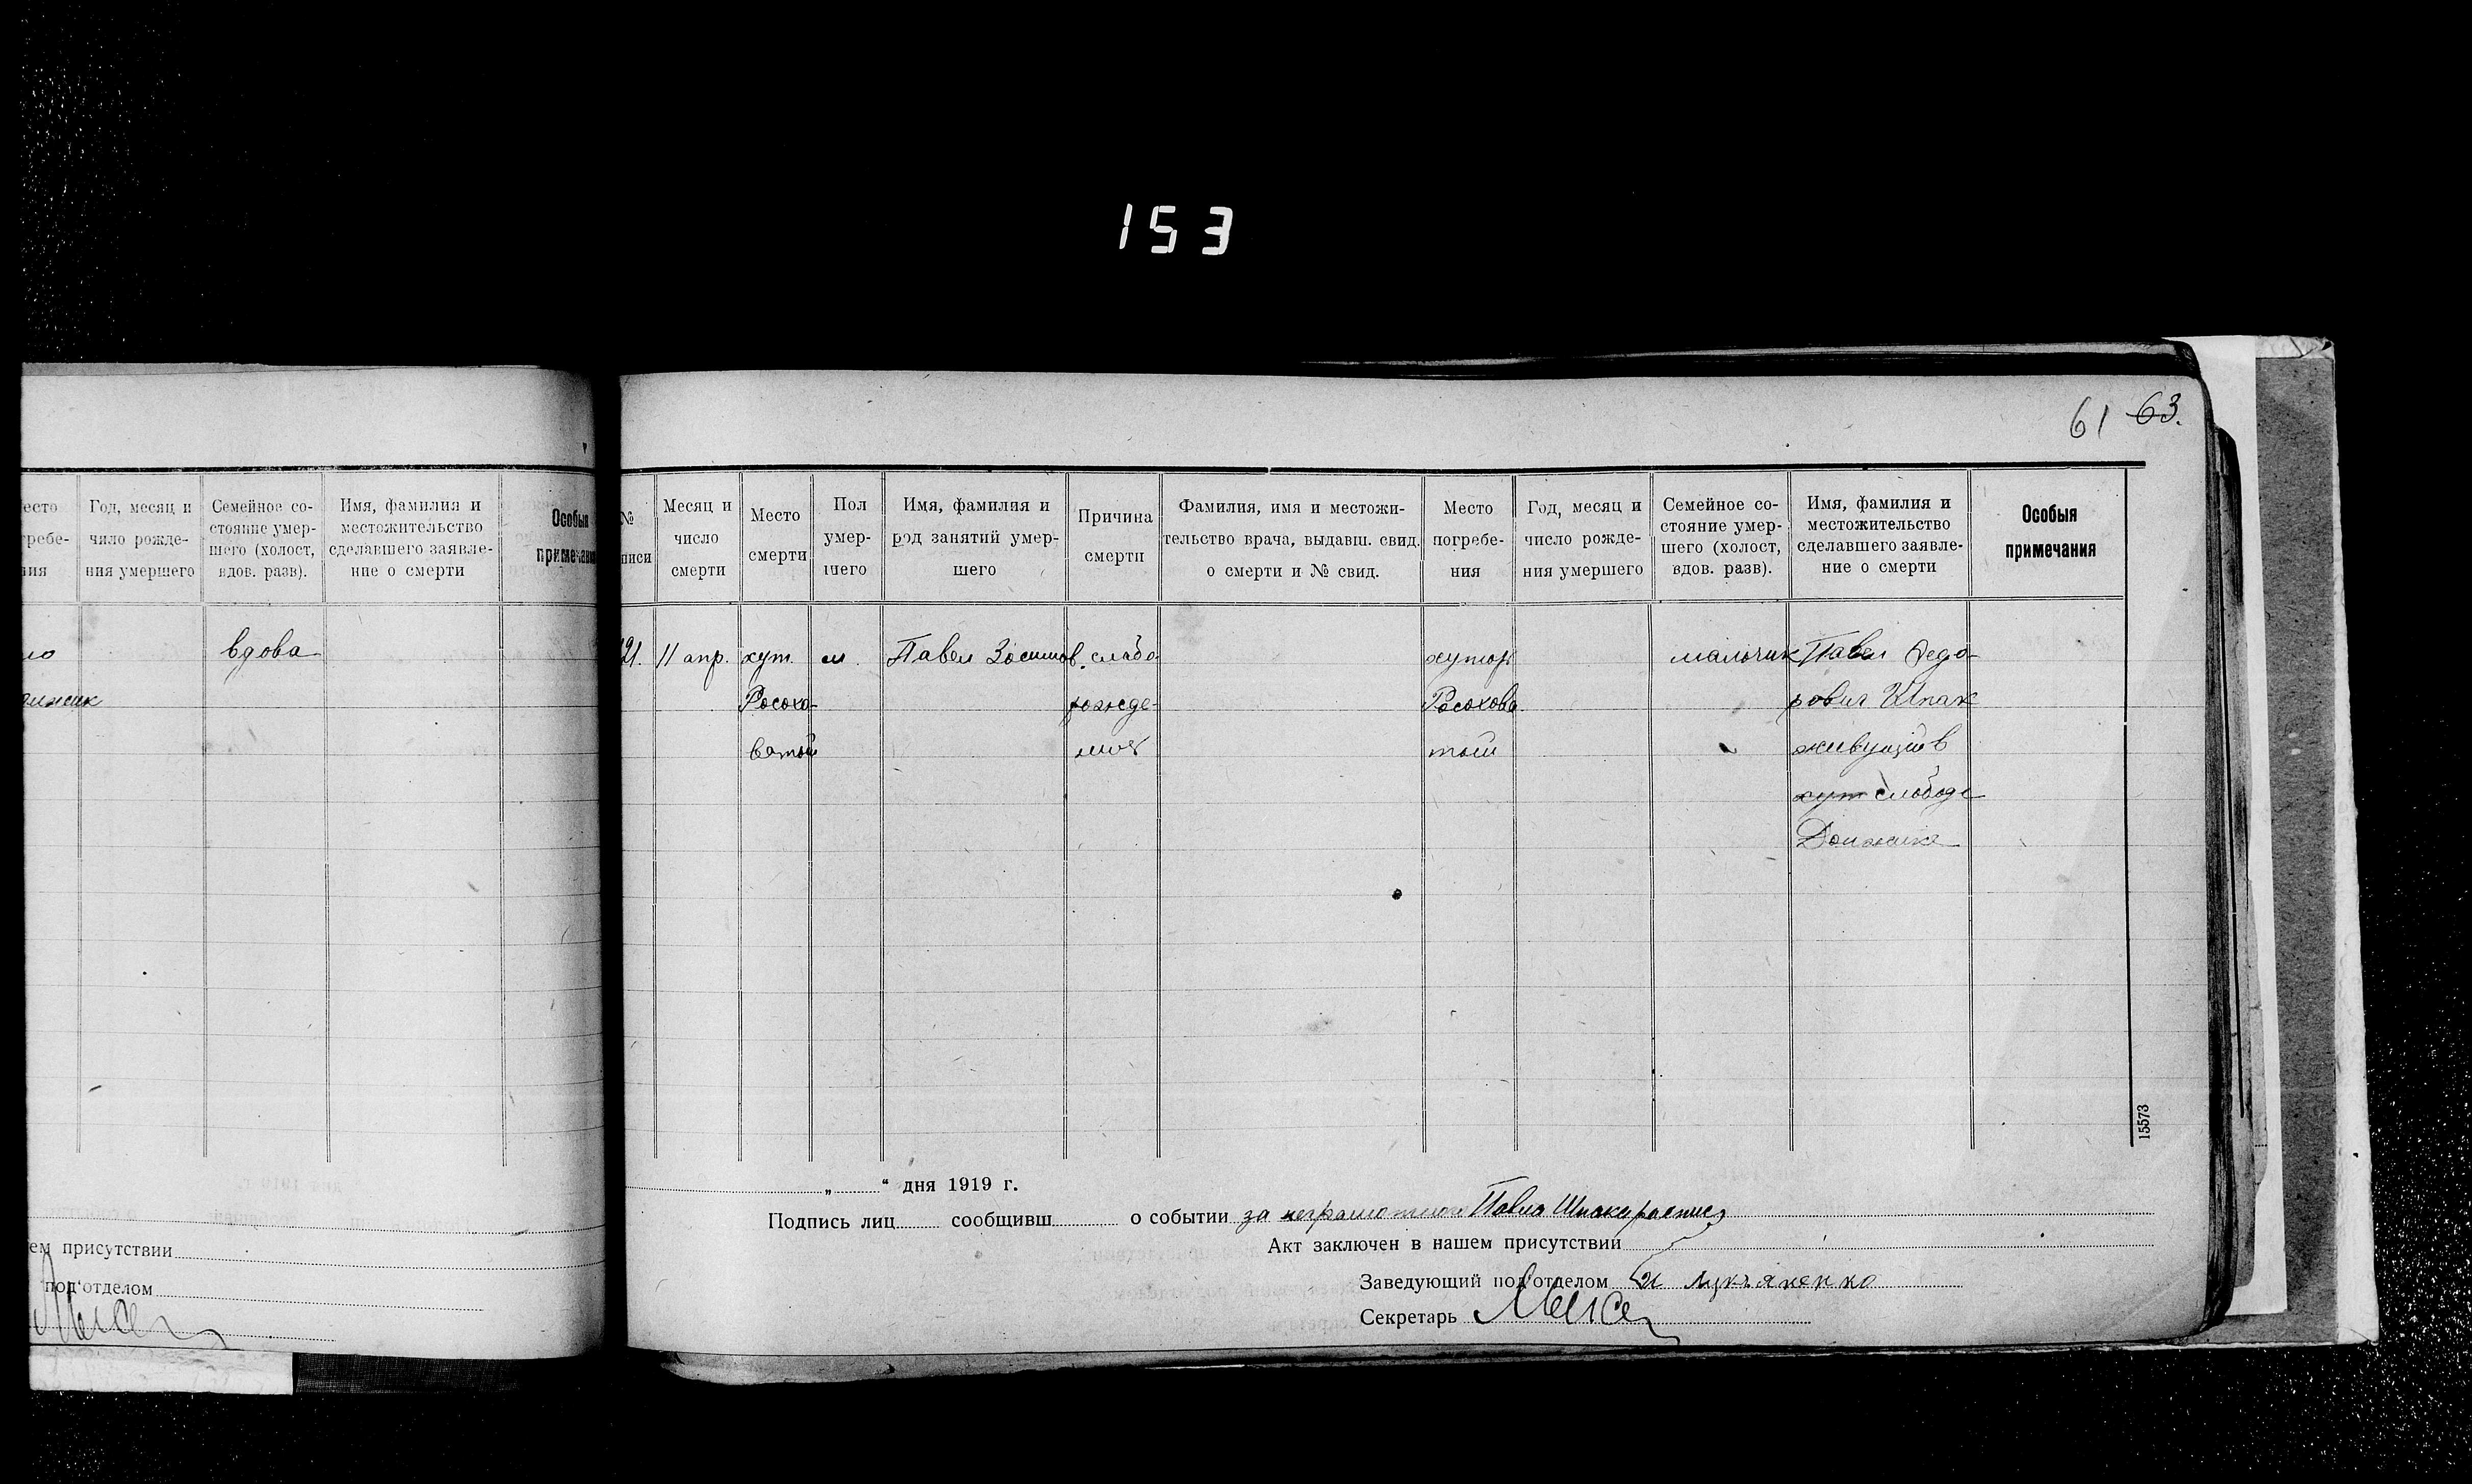 153
61 63.
есто
гребе-
ния
Год, месяц и
число рожде-
ния умершего
Семейное со-
стояние умер-
шего (холост,
вдов. разв).
Имя, фамилия и
местожительство
сделавшего заявле-
ние о смерти
Особыя
примечания
вдова
ем присутствии
под'отделом
№
писи
Месяц и
число
смерти
Место
смерти
Пол
умер-
шего
Имя, фамилия и
род занятий умер-
шего
Причина
смерти
Фамилия, имя и местожи-
тельство врача, выдавш. свид.
о смерти и № свид.
Место
погребе-
ния
Год, месяц и
число рожде-
ния умершего
Семейное со-
стояние умер-
шего (холост,
вдов. разв).
Имя, фамилия и
местожительство
сделавшего заявле-
ние о смерти
Особыя
примечания
21.
11 апр.
хут.
Росохо-
ватый
м.
Павел Зосимов
слабо-
рожде-
ние
хутор
Росохова
тый
мальчик
Павел Федо-
рович Шпак
живущий в
хут слободе
Должике
15573
„ “ дня 1919 г.
Подпись лиц сообщивш о событии за неграмотного Павла Шпака распис
Акт заключен в нашем присутствии
Заведующий под'отделом Лукьяненко
Секретарь